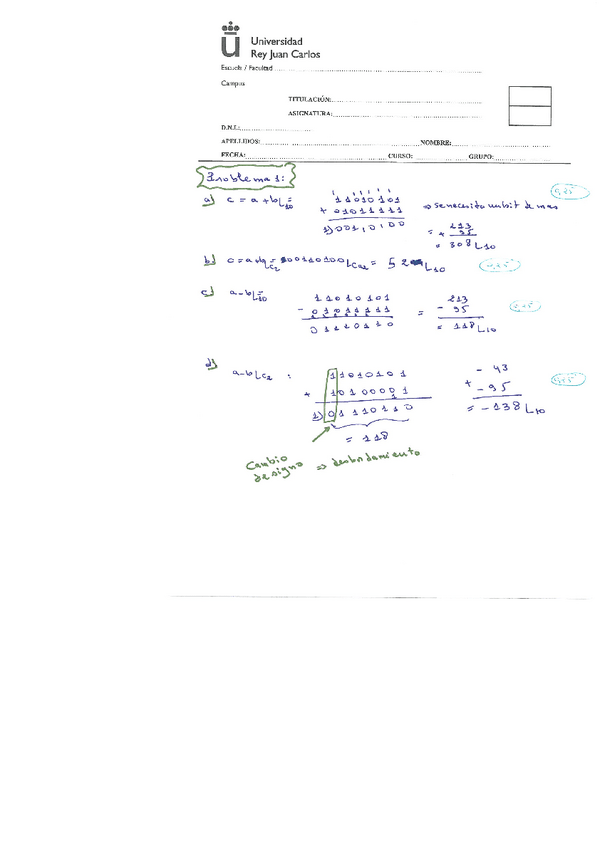 Universidad
Rey Juan Carlos
Escuela / Facultad
Campus
TITULACIÓN:
ASIGNATURA:
D.N.I.:
APELLIDOS: NOMBRE:
FECHA: CURSO: GRUPO:
Problema 1:
a) c = a + b|10 = 11010101 0,25
+ 01011111 ⇒ se necesita un bit de mas
1)00110100 = + 213
95
= 308|10
b) c = a+b|C2 = 00110100|Ca2 = 52|10 0,25
c) a-b|10 = 11010101 213 0,25
- 01011111 = - 95
01110110 = 118|10
d) a-b|C2 : 11010101 - 43 0,25
+ 10100001 + - 95
1)01110110 = -138|10
= 118
Cambio
de signo ⇒ desbordamiento